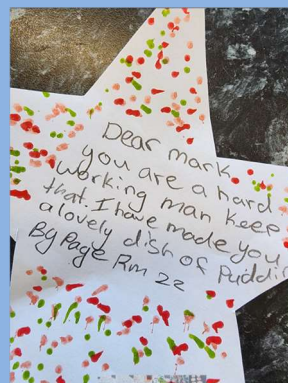 Dear mark
you are a hard
working man keep
that. I have made you
a lovely dish of Puddin
By Page Rm 22